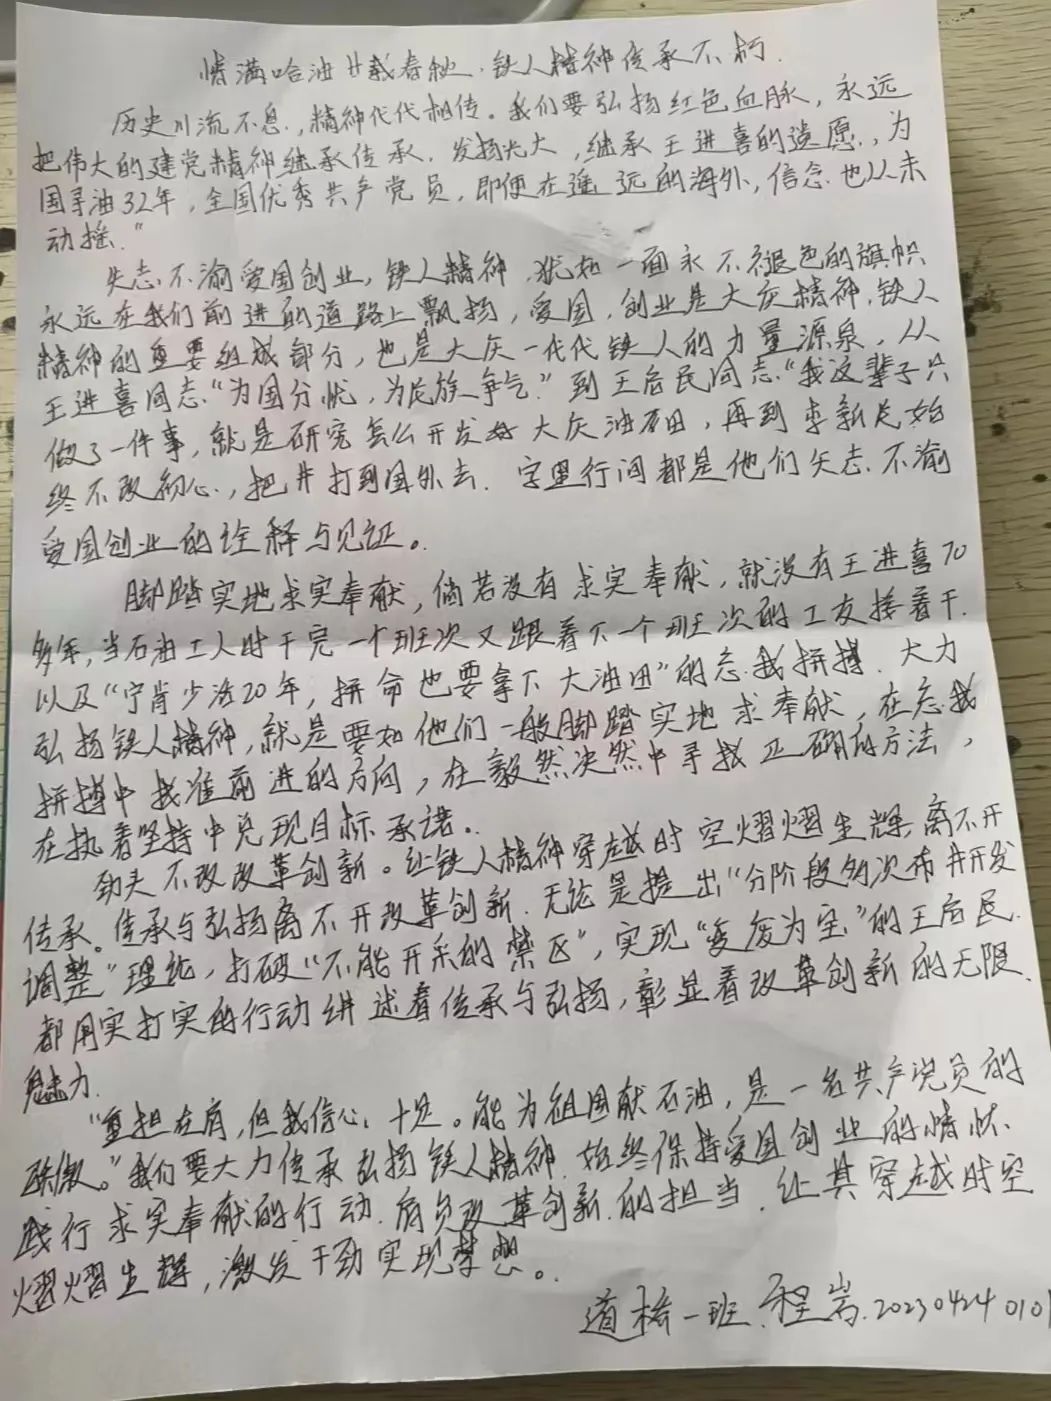 情满哈油廿载春秋，铁人精神传承不朽.
历史川流不息，精神代代相传。我们要弘扬红色血脉，永远
把伟大的建党精神继承传承，发扬光大，继承王进喜的遗愿，为
国寻油32年，全国优秀共产党员，即便在遥远的海外，信念也从未
动摇."
矢志不渝爱国创业，铁人精神，犹如一面永不褪色的旗帜
永远在我们前进的道路上飘扬，爱国，创业是大庆精神，铁人
精神的重要组成部分，也是大庆一代代铁人的力量源泉，从
王进喜同志"为国分忧，为民族争气"到王启民同志"我这辈子只
做了一件事，就是研究怎么开发好大庆油田，再到李新民始
终不改初心，把井打到国外去. 字里行间都是他们矢志不渝
爱国创业的诠释与见证。
脚踏实地求实奉献，倘若没有求实奉献，就没有王进喜70
多年，当石油工人时干完一个班次又跟着下一个班次的工友接着干.
以及"宁肯少活20年，拼命也要拿下大油田"的忘我拼搏. 大力
弘扬铁人精神，就是要如他们一般脚踏实地求奉献，在忘我
拼搏中找准前进的方向，在毅然决然中寻找正确的方法，
在执着坚持中兑现目标承诺。
劲头不改改革创新。让铁人精神穿越时空熠熠生辉，离不开
传承。传承与弘扬离不开改革创新. 无论是提出"分阶段多次布井开发
调整"理论，打破"不能开采的禁区"，实现"变废为宝"的王启民.
都用实打实的行动讲述着传承与弘扬，彰显着改革创新的无限
魅力.
"重担在肩，但我信心十足。能为祖国献石油，是一名共产党员的
骄傲。"我们要大力传承弘扬铁人精神. 始终保持爱国创业的情怀、
践行求实奉献的行动. 肩负改革创新的担当. 让其穿越时空
熠熠生辉，激发干劲实现梦想。
道桥一班. 程嵩. 20230424 0101